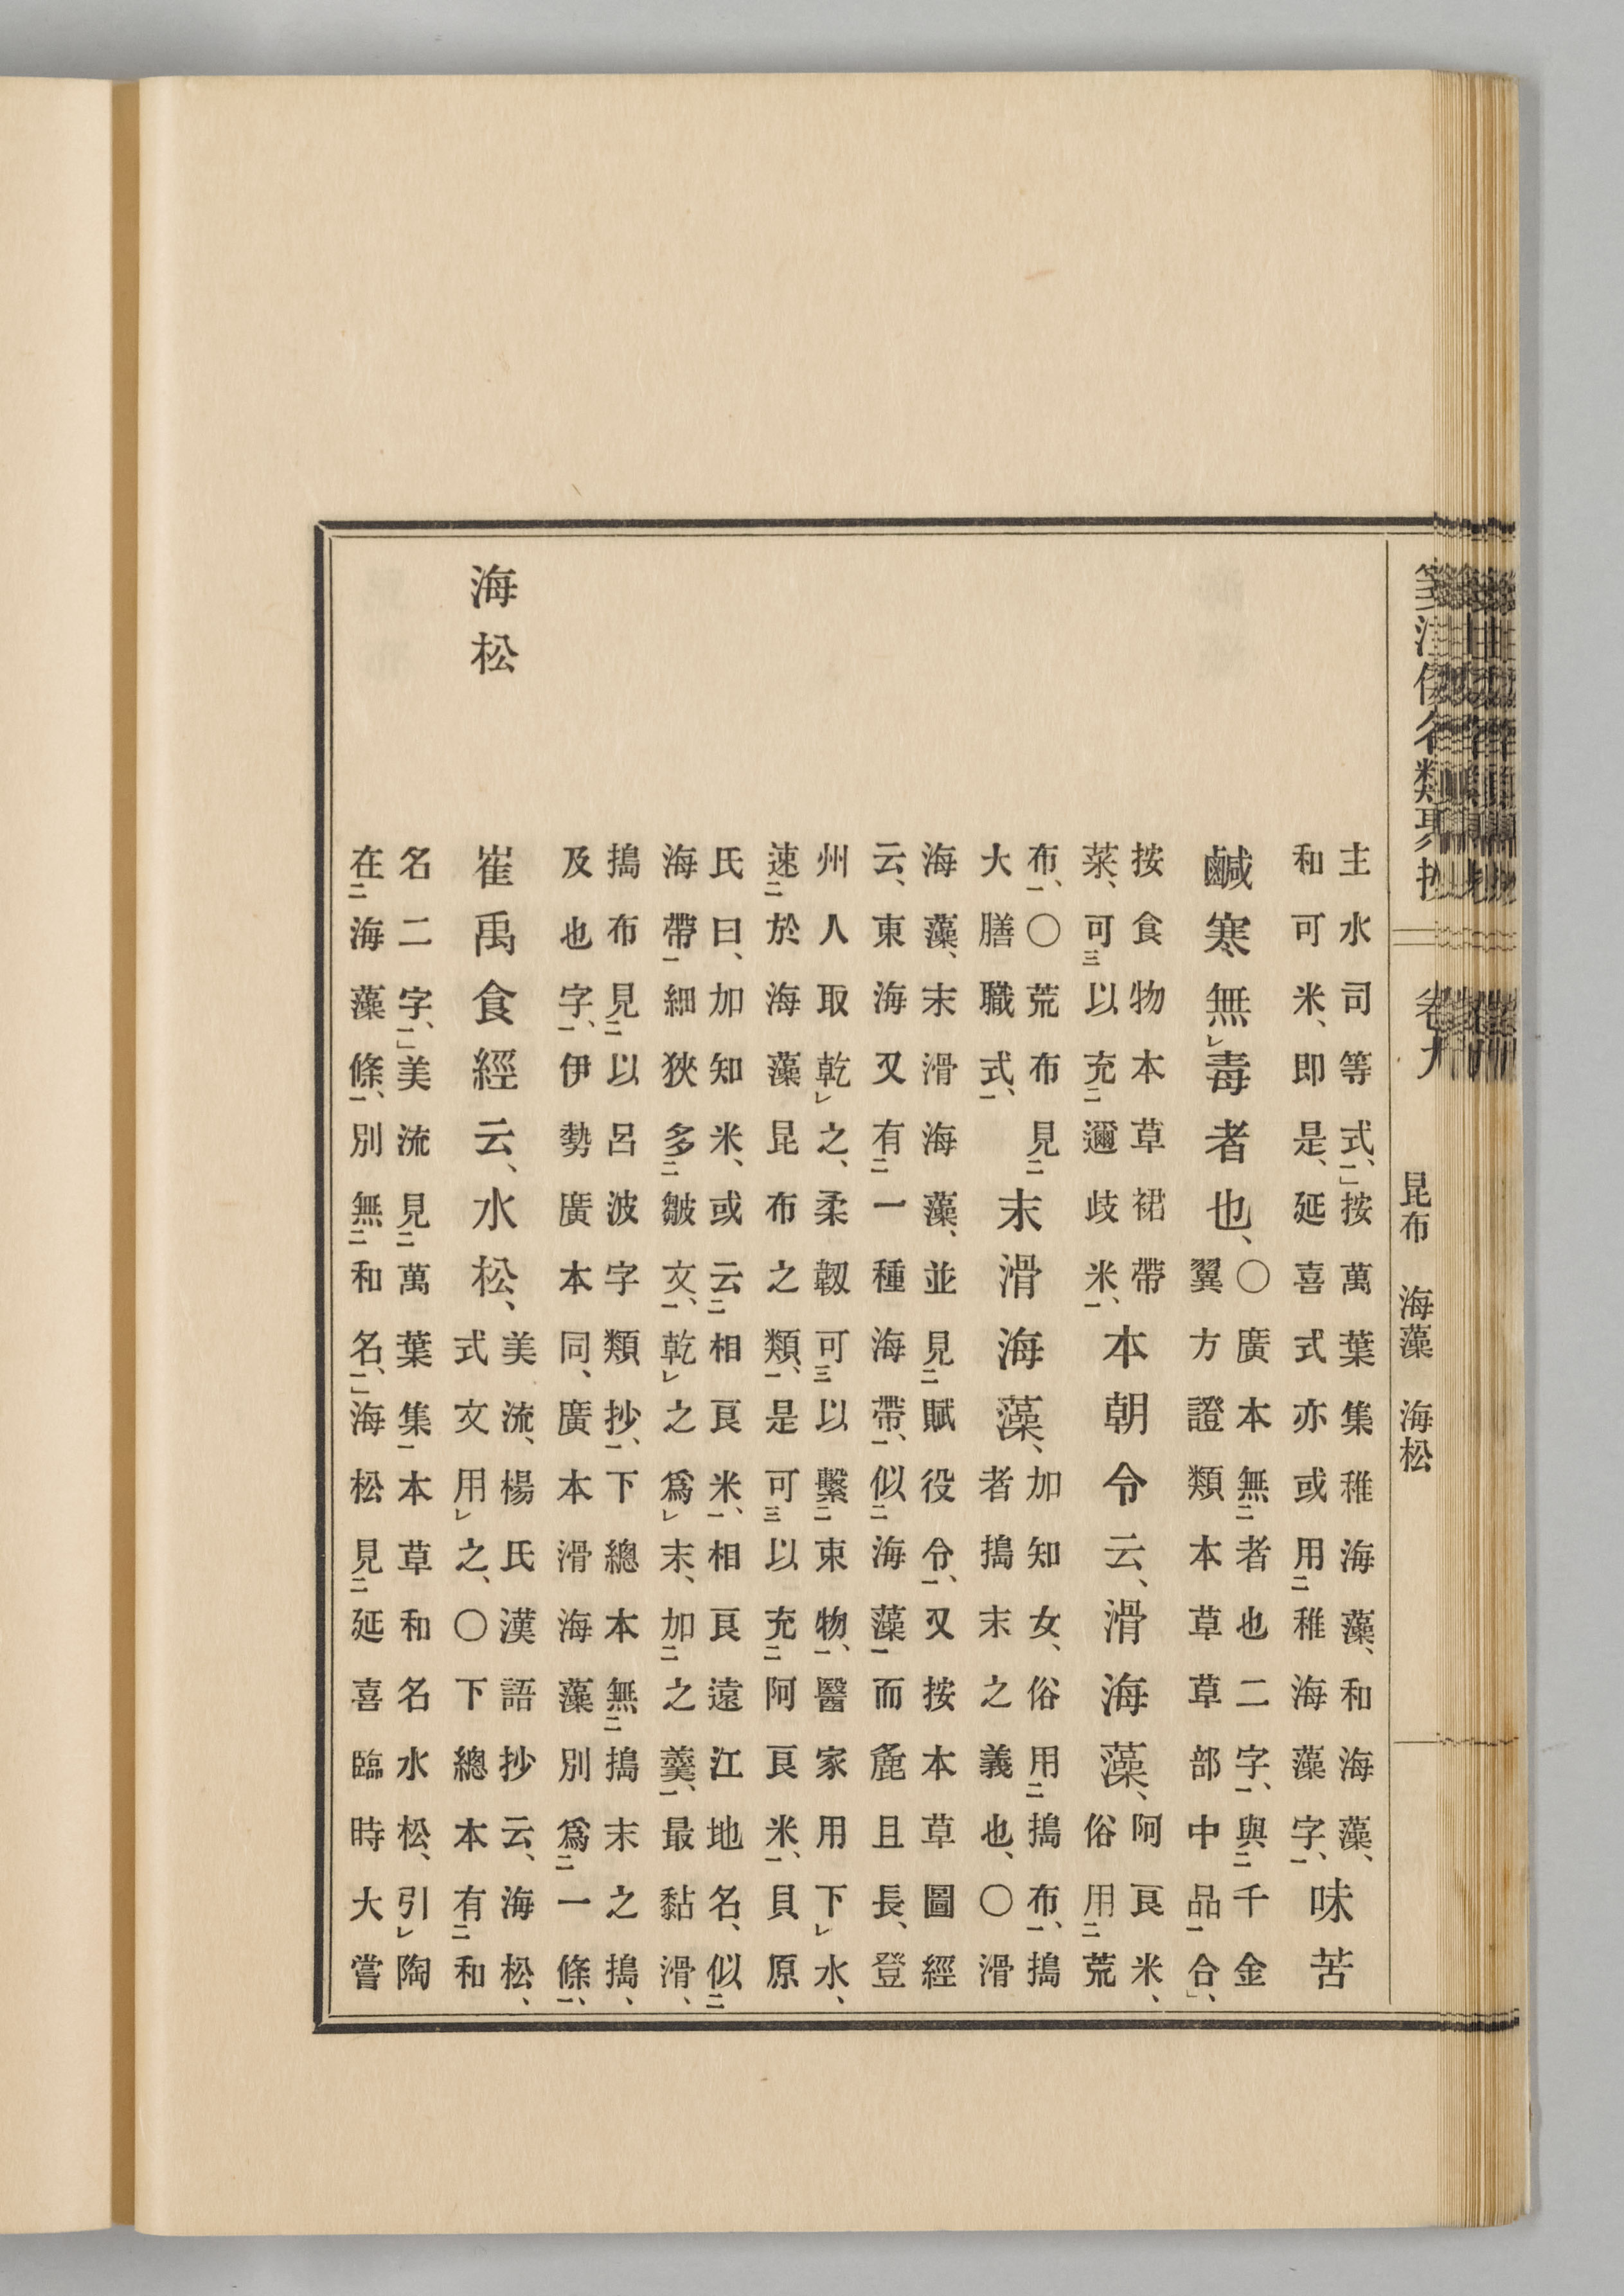 箋注倭名類聚抄 卷九 昆布 海藻 海松
主水司等式、按萬葉集稚海藻、和海藻、
和可米、即是、延喜式亦或用稚海藻字、
味苦
鹹寒無毒者也、
〇廣本無者也二字、與千金
翼方證類本草草部中品合、
按食物本草裙帶
菜、可以充邇歧米、
本朝令云、滑海藻、
阿良米、
俗用荒
布、〇荒布見
大膳職式、
末滑海藻、
加知女、俗用搗布、搗
者搗末之義也、〇滑
海藻、末滑海藻、並見賦役令、又按本草圖經
云、東海又有一種海帶、似海藻而麁且長、登
州人取乾之、柔韌可以繫束物、醫家用下水、
速於海藻昆布之類、是可以充阿良米、貝原
氏曰、加知米、或云相良米、相良遠江地名、似
海帶細狹多皺文、乾之爲末、加之羹、最黏滑、
搗布見以呂波字類抄、下總本無搗末之搗、
及也字、伊勢廣本同、廣本滑海藻別爲一條、
海松
崔禹食經云、水松、
美流、楊氏漢語抄云、海松、
式文用之、〇下總本有和
名二字、美流見萬葉集本草和名水松、引陶
在海藻條、別無和名、海松見延喜臨時大嘗